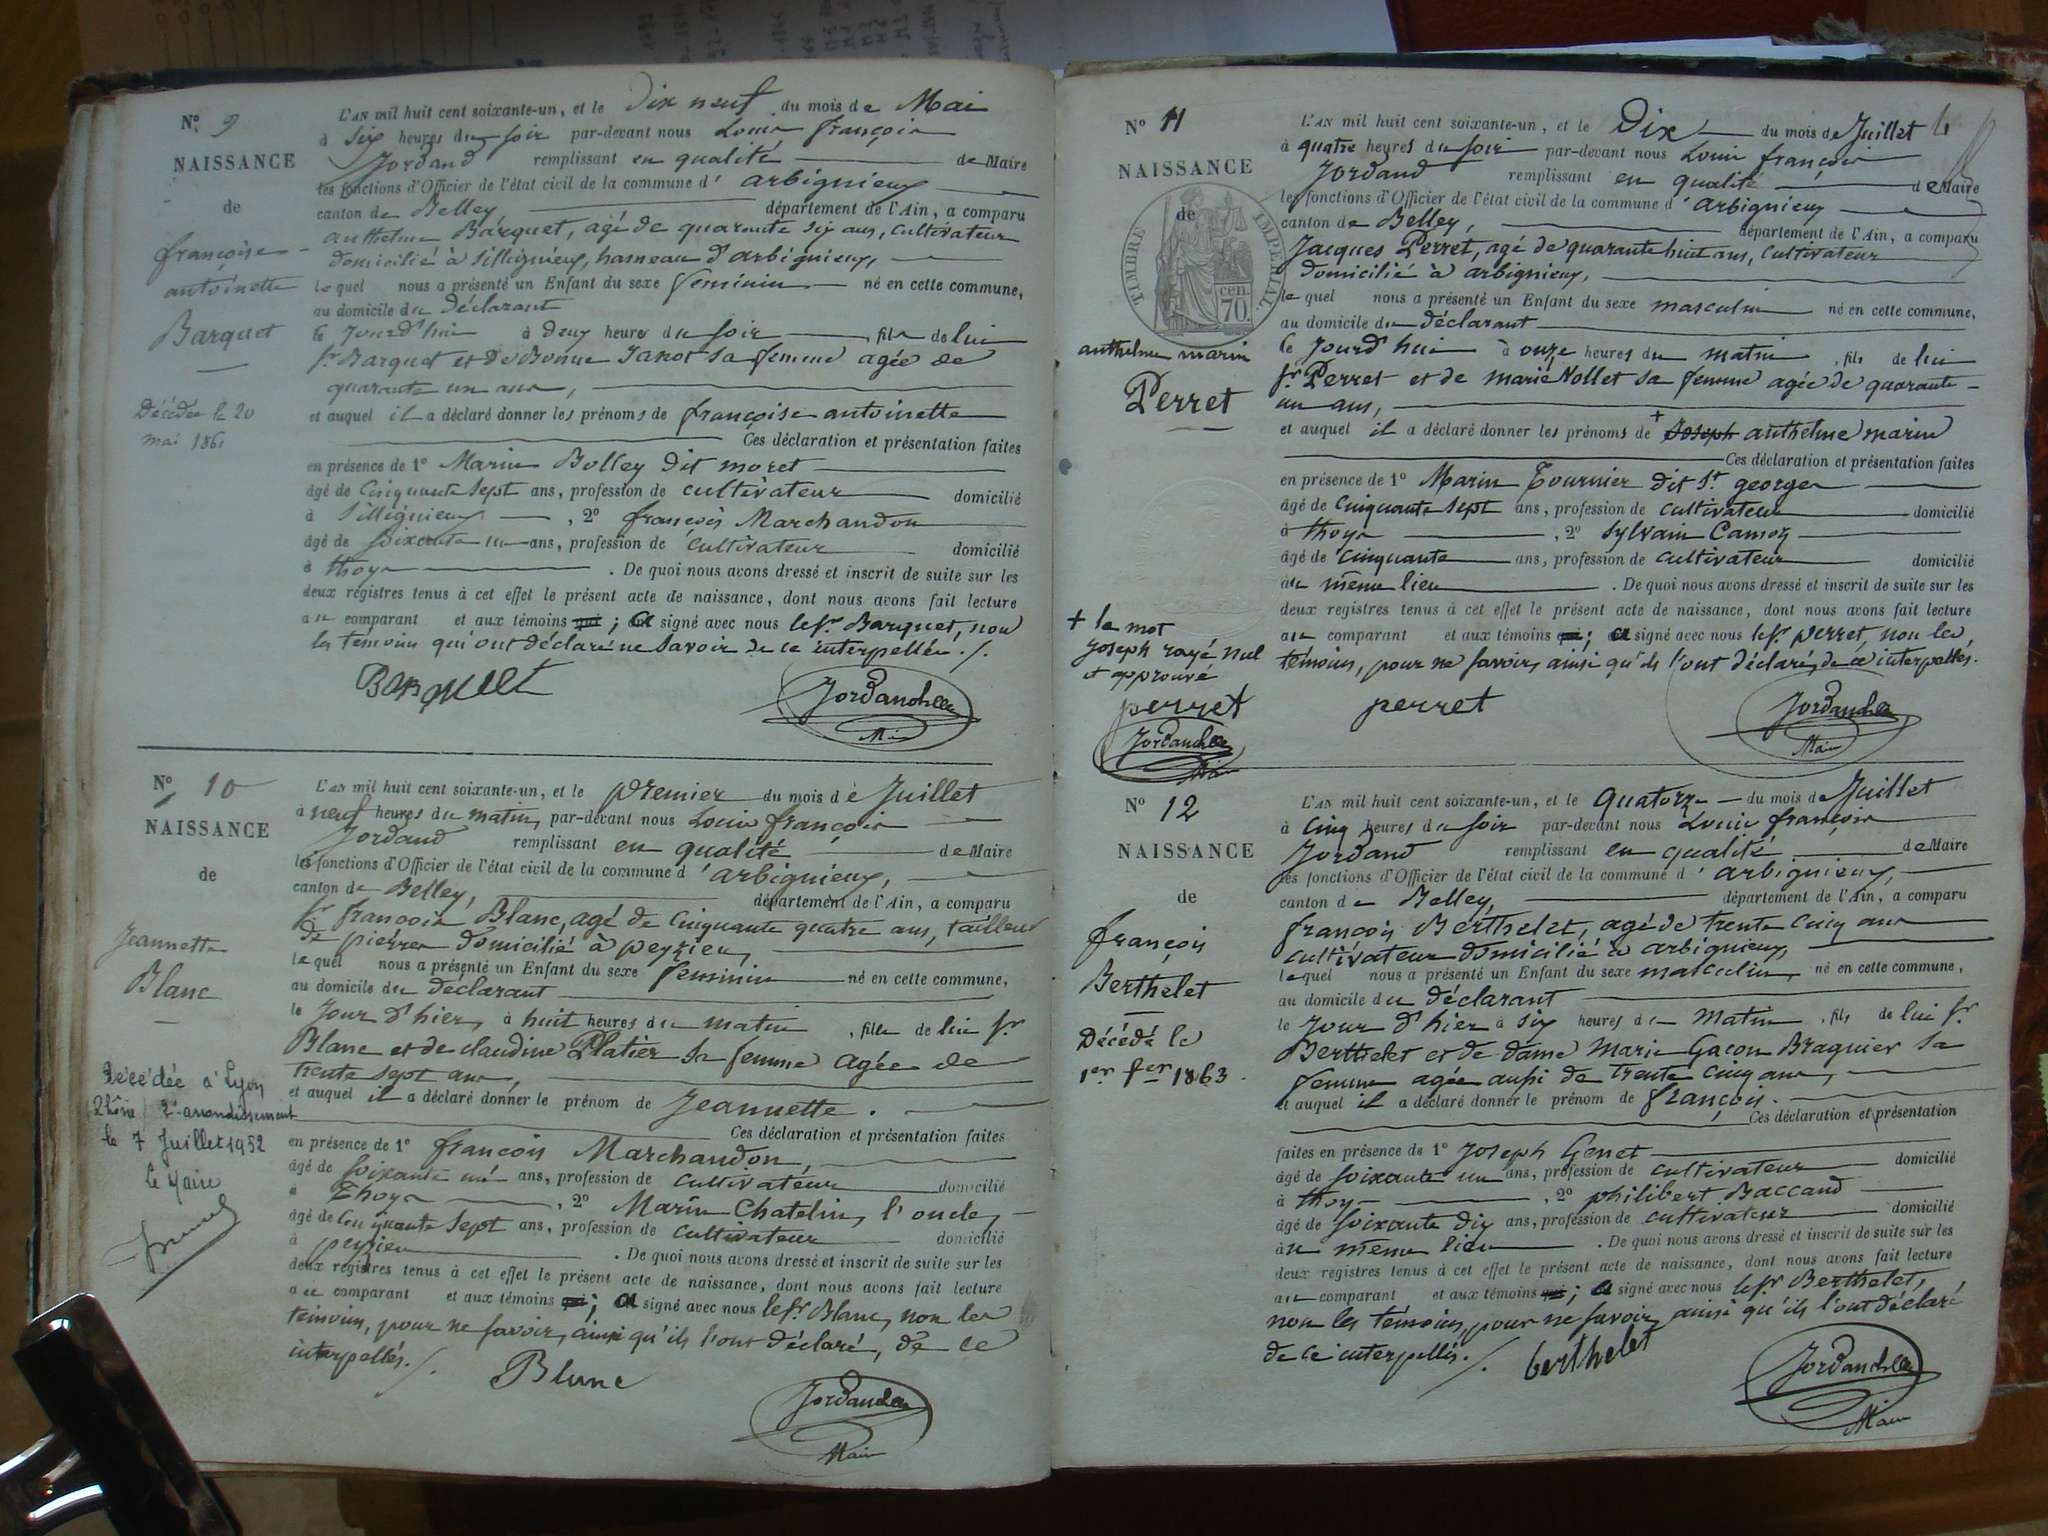 N° 9
NAISSANCE
de
françoise
antoinette
Barquet
Décédée le 20
mai 1861
L'AN mil huit cent soixante-un, et le Dix neuf du mois de Mai
à six heures du soir par-devant nous Louis françois
Jordand remplissant en qualité de Maire
les fonctions d'Officier de l'état civil de la commune d'arbignieux
canton de Belley département de l'Ain, a comparu
anthelme Barquet, agé de quarante six ans, cultivateur
domicilié à sillignieux, hameau d'arbignieux,
lequel nous a présenté un Enfant du sexe feminin né en cette commune,
au domicile du Déclarant
le Jourd'hui à deux heures du soir, fille de lui
sr Barquet et De Bonne Janot sa femme agée de
quarante un ans,
et auquel il a déclaré donner les prénoms de françoise antoinette
Ces déclaration et présentation faites
en présence de 1° Marin Bolley dit moret
âgé de cinquante sept ans, profession de cultivateur domicilié
à Sillignieux, 2° françois Marchandon
âgé de soixante un ans, profession de cultivateur domicilié
à thoys. De quoi nous avons dressé et inscrit de suite sur les
deux registres tenus à cet effet le présent acte de naissance, dont nous avons fait lecture
au comparant et aux témoins qui; a signé avec nous le sr Barquet, non
les témoins qui ont déclaré ne savoir de ce interpellés ./.
Barquet
Jordand
Maire
N° 10
NAISSANCE
de
Jeannette
Blanc
Décédée à Lyon
Rhône 2e arrondissement
le 7 Juillet 1952
Le Maire
L'AN mil huit cent soixante-un, et le premier du mois de Juillet
à neuf heures du matin, par-devant nous Louis françois
Jordand remplissant en qualité de Maire
les fonctions d'Officier de l'état civil de la commune d'arbignieux,
canton de Belley, département de l'Ain, a comparu
sr françois Blanc, agé de cinquante quatre ans, tailleur
de pierres domicilié à peyzieu,
lequel nous a présenté un Enfant du sexe feminin né en cette commune,
au domicile du déclarant
le Jour d'hier, à huit heures du matin, fille de lui sr
Blanc et de claudine Platier sa femme agée de
trente sept ans,
et auquel il a déclaré donner le prénom de Jeannette.
Ces déclaration et présentation faites
en présence de 1° françois Marchandon,
âgé de soixante un ans, profession de cultivateur domicilié
à Thoys, 2° Marin Chatelin, l'oncle,
âgé de cinquante sept ans, profession de cultivateur domicilié
à peyzieu. De quoi nous avons dressé et inscrit de suite sur les
deux registres tenus à cet effet le présent acte de naissance, dont nous avons fait lecture
au comparant et aux témoins qui; a signé avec nous le sr Blanc, non les
témoins, pour ne savoir, ainsi qu'ils l'ont déclaré, de ce
interpellés. ./.
Blanc
Jordand
Maire
N° 11
NAISSANCE
de
TIMBRE IMPERIAL
cen.
70.
anthelme marin
Perret
+ le mot
Joseph rayé nul
et approuvé
perret
Jordand
Maire
L'AN mil huit cent soixante-un, et le Dix du mois de Juillet
à quatre heures du soir par-devant nous Louis françois
Jordand remplissant en qualité de Maire
les fonctions d'Officier de l'état civil de la commune d'arbignieux
canton de Belley, département de l'Ain, a comparu
Jacques Perret, agé de quarante huit ans, cultivateur
domicilié à arbignieux,
lequel nous a présenté un Enfant du sexe masculin né en cette commune,
au domicile du déclarant
le Jourd'hui à onze heures du matin, fils de lui
sr Perret et de marie Nollet sa femme agée de quarante-
un ans,
et auquel il a déclaré donner les prénoms de + Joseph anthelme marin
Ces déclaration et présentation faites
en présence de 1° Marin Tournier dit St. george
âgé de cinquante sept ans, profession de cultivateur domicilié
à thoys, 2° sylvain Camoz
âgé de cinquante ans, profession de cultivateur domicilié
au même lieu. De quoi nous avons dressé et inscrit de suite sur les
deux registres tenus à cet effet le présent acte de naissance, dont nous avons fait lecture
au comparant et aux témoins qui; a signé avec nous le sr perret, non les
témoins, pour ne savoir, ainsi qu'ils l'ont déclaré, de ce interpellés.
perret
Jordand
Maire
N° 12
NAISSANCE
de
françois
Berthelet
Décédé le
1er fer 1863.
L'AN mil huit cent soixante-un, et le quatorze du mois de Juillet
à cinq heures du soir par-devant nous Louis françois
Jordand remplissant en qualité de Maire
les fonctions d'Officier de l'état civil de la commune d'arbignieux,
canton de Belley, département de l'Ain, a comparu
françois Berthelet, agé de trente cinq ans
cultivateur domicilié à arbignieux,
lequel nous a présenté un Enfant du sexe masculin, né en cette commune,
au domicile du déclarant
le Jour d'hier à six heures du matin, fils de lui sr
Berthelet et de dame Marie Gacon Braguier sa
femme agée aussi de trente cinq ans,
et auquel il a déclaré donner le prénom de françois.
Ces déclaration et présentation
faites en présence de 1° Joseph Genet
âgé de soixante un ans, profession de cultivateur domicilié
à thoys, 2° philibert Baccand
âgé de soixante dix ans, profession de cultivateur domicilié
au même lieu. De quoi nous avons dressé et inscrit de suite sur les
deux registres tenus à cet effet le présent acte de naissance, dont nous avons fait lecture
au comparant et aux témoins qui; a signé avec nous le sr Berthelet,
non les témoins, pour ne savoir, ainsi qu'ils l'ont déclaré
de ce interpellés. ./.
berthelet
Jordand
Maire